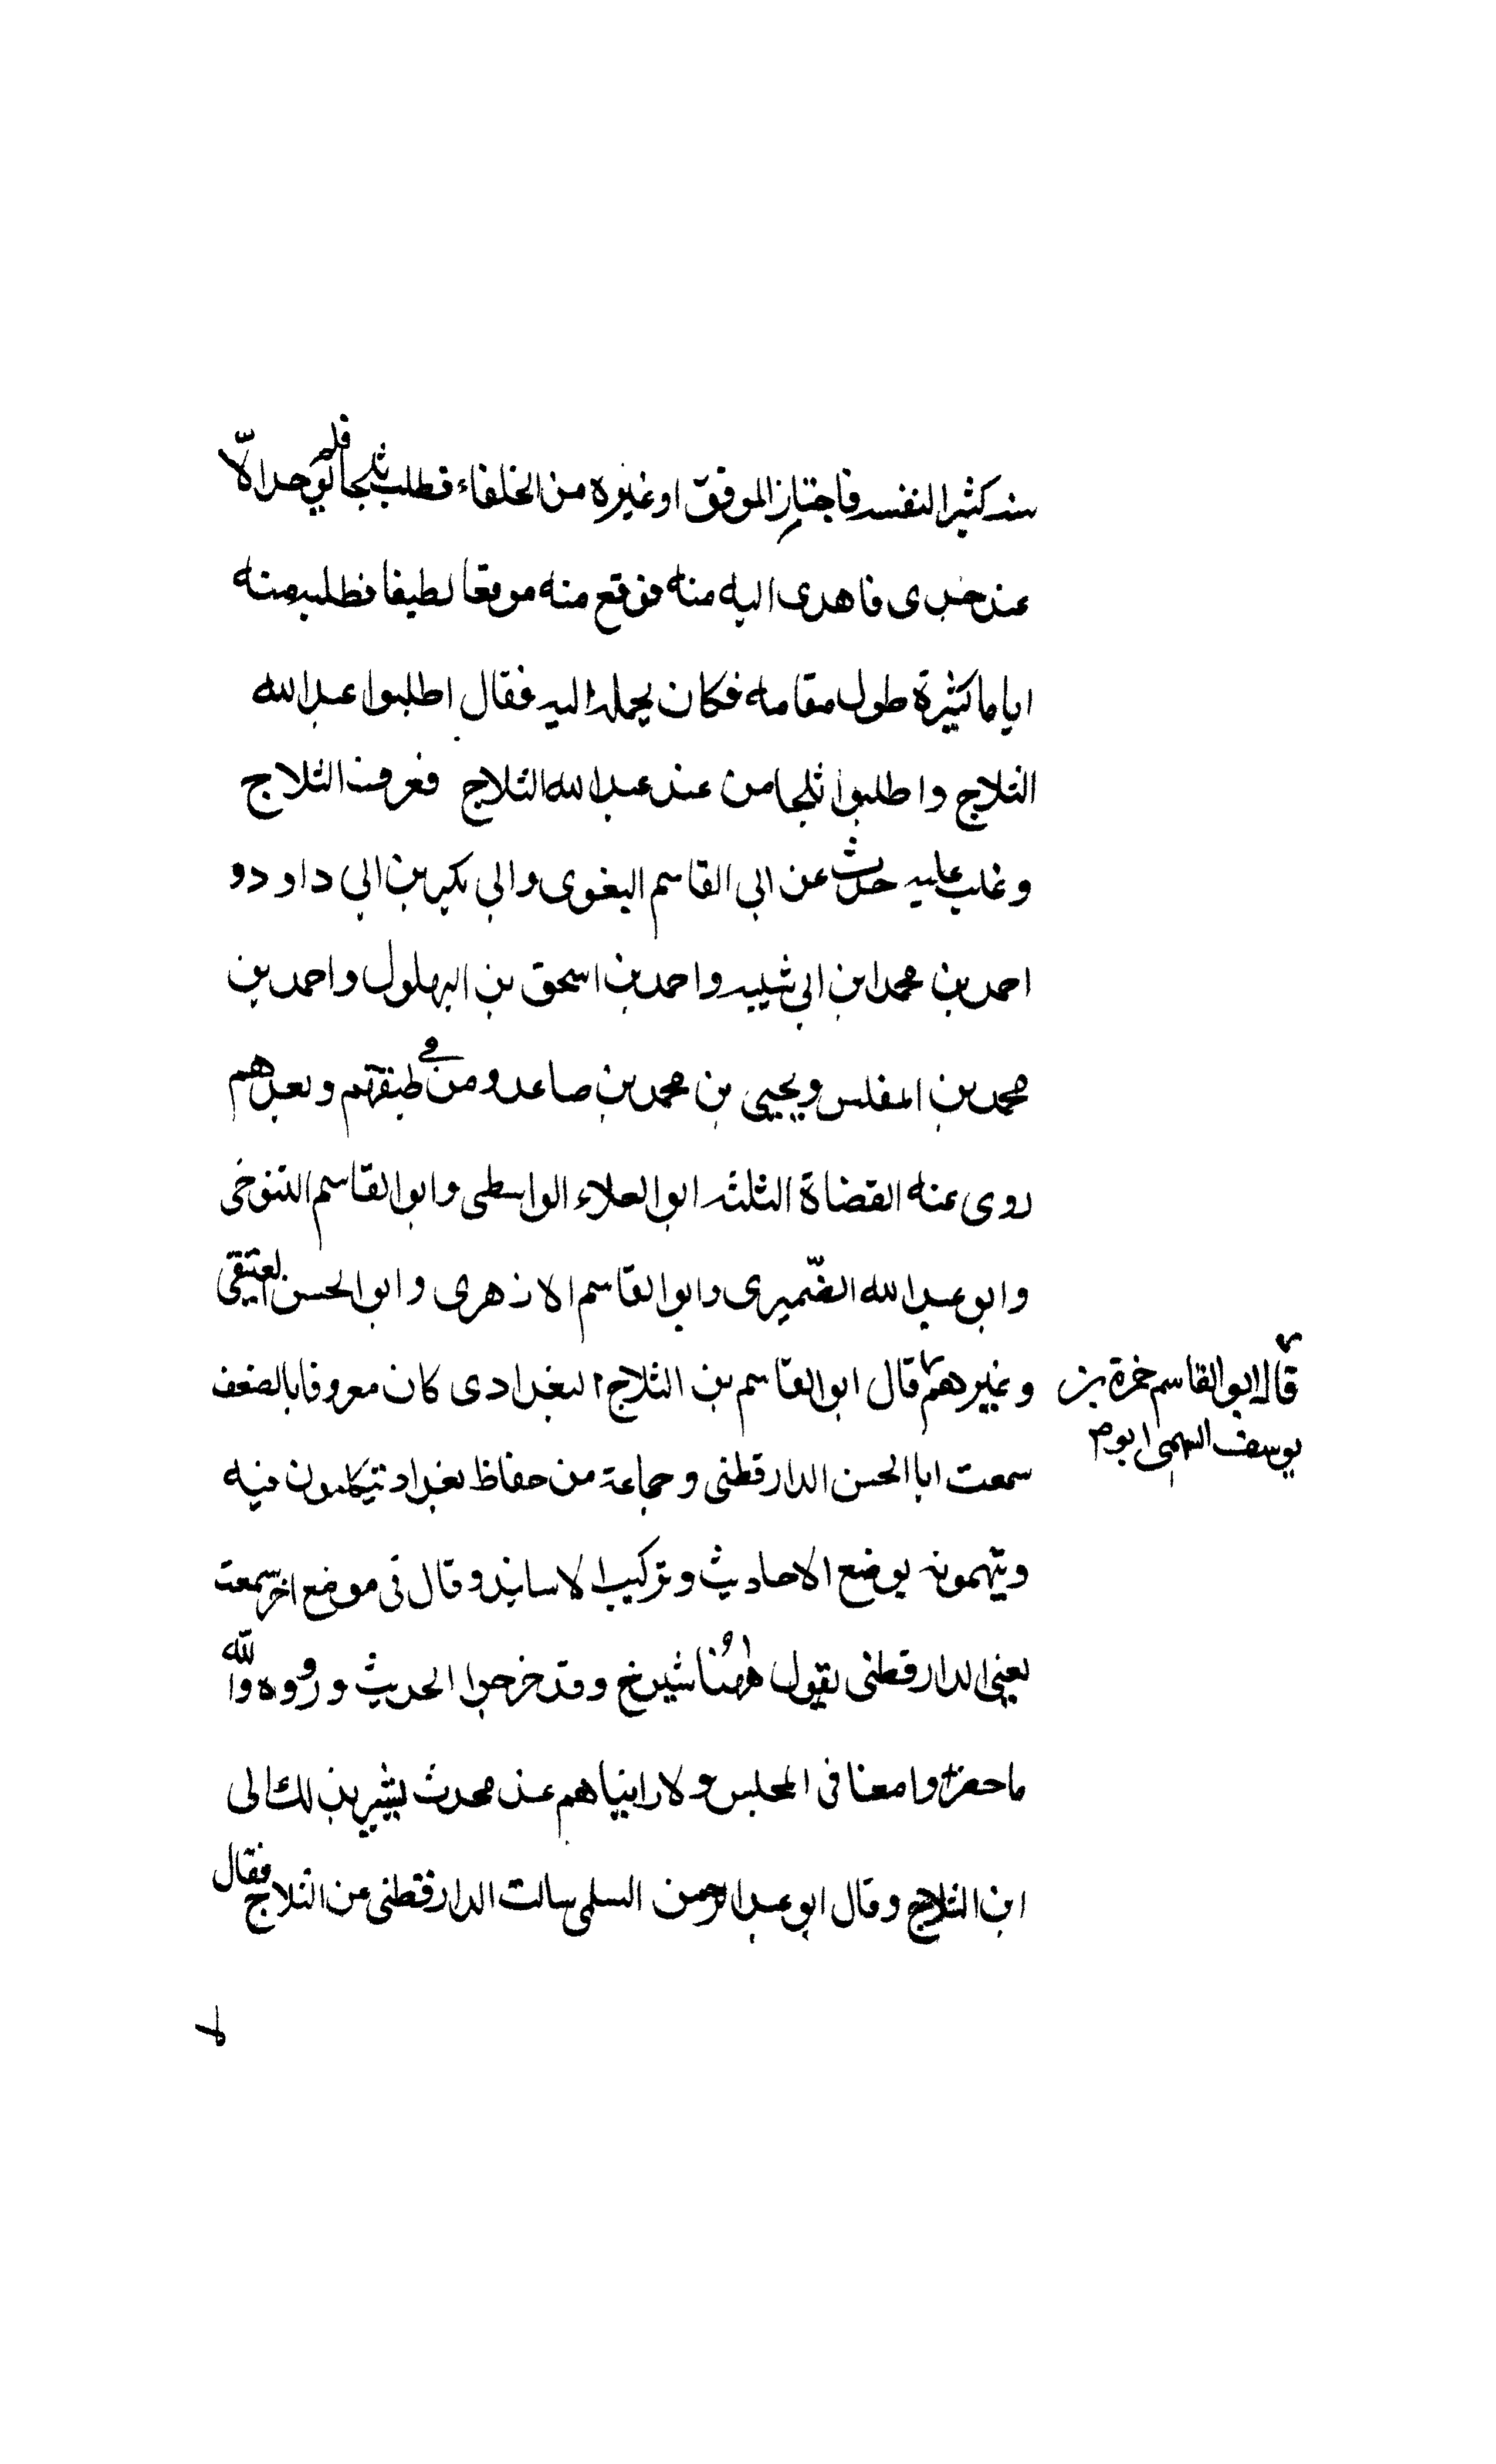 سنه كثيرا لنفسه فاجتاز الموفق او غيره من الخلفاء فطلب ثلجا فلم يوجد الّا
عند جدى فاهدى اليه منه فوقع منه موقعا لطيفا فطلب منه
اياما كثيرة طول مقامه فكان يحمله اليه فقال اطلبوا عبد الله
الثلاج واطلبوا ثلجا من عند عبد الله الثلاج فعرف الثلاج
وغلب عليه حدث عن ابى القاسم البغوى وابى بكر بن ابى داود و
احمد بن محمد ابن ابى شيبه واحمد بن اسحق بن البهلول واحمد بن
محمد بن المفلس ويحيى بن محمد بن صاعد ومن فى طبقتهم وبعدهم
روى عنه القضاة الثلثه ابو العلاء الواسطى وابو القاسم التنوخى
وابو عبد الله الضّميرى وابو القاسم الازهرى وابو الحسن العتيقى
وغيرهم قال ابو القاسم بن الثلاج البغدادى كان معروفا بالضعف
قاله ابو القاسم حمزة بن
يوسف السهمى
سمعت ابا الحسن الدارقطنى وجماعة من حفاظ بغداد يتكلمون فيه
ويتهمونه بوضع الاحاديث وتركيب الاسانيد وقال فى موضع اخر سمعت
يعنى الدارقطنى يقول ههُنا شيوخ وقد خرجوا الحديث و رووه والله
ما حضروا معنا فى المجلس ولا رايناهم عند محدث يشير بذلك الى
ابن الثلاج وقال ابو عبد الرحمن السلمى سالت الدارقطنى عن الثلاج فقال
لا